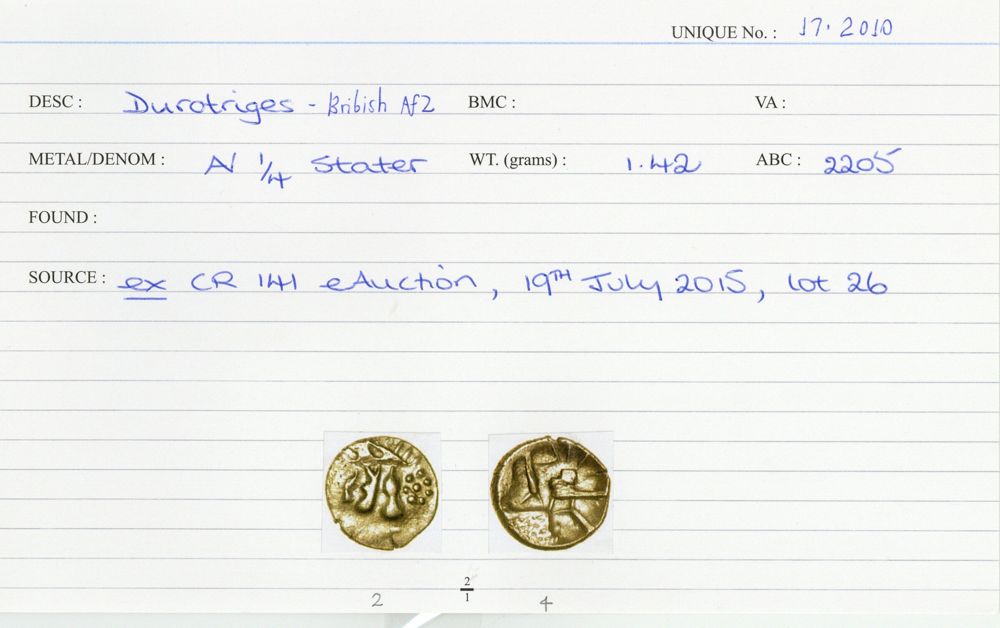 UNIQUE No. : 17.2010
DESC : Durotriges - British Af2 BMC : VA :
METAL/DENOM : AV 1/4 Stater WT. (grams) : 1.42 ABC : 2205
FOUND :
SOURCE : ex CR 141 eAuction, 19TH July 2015, lot 26
2/1
2 4